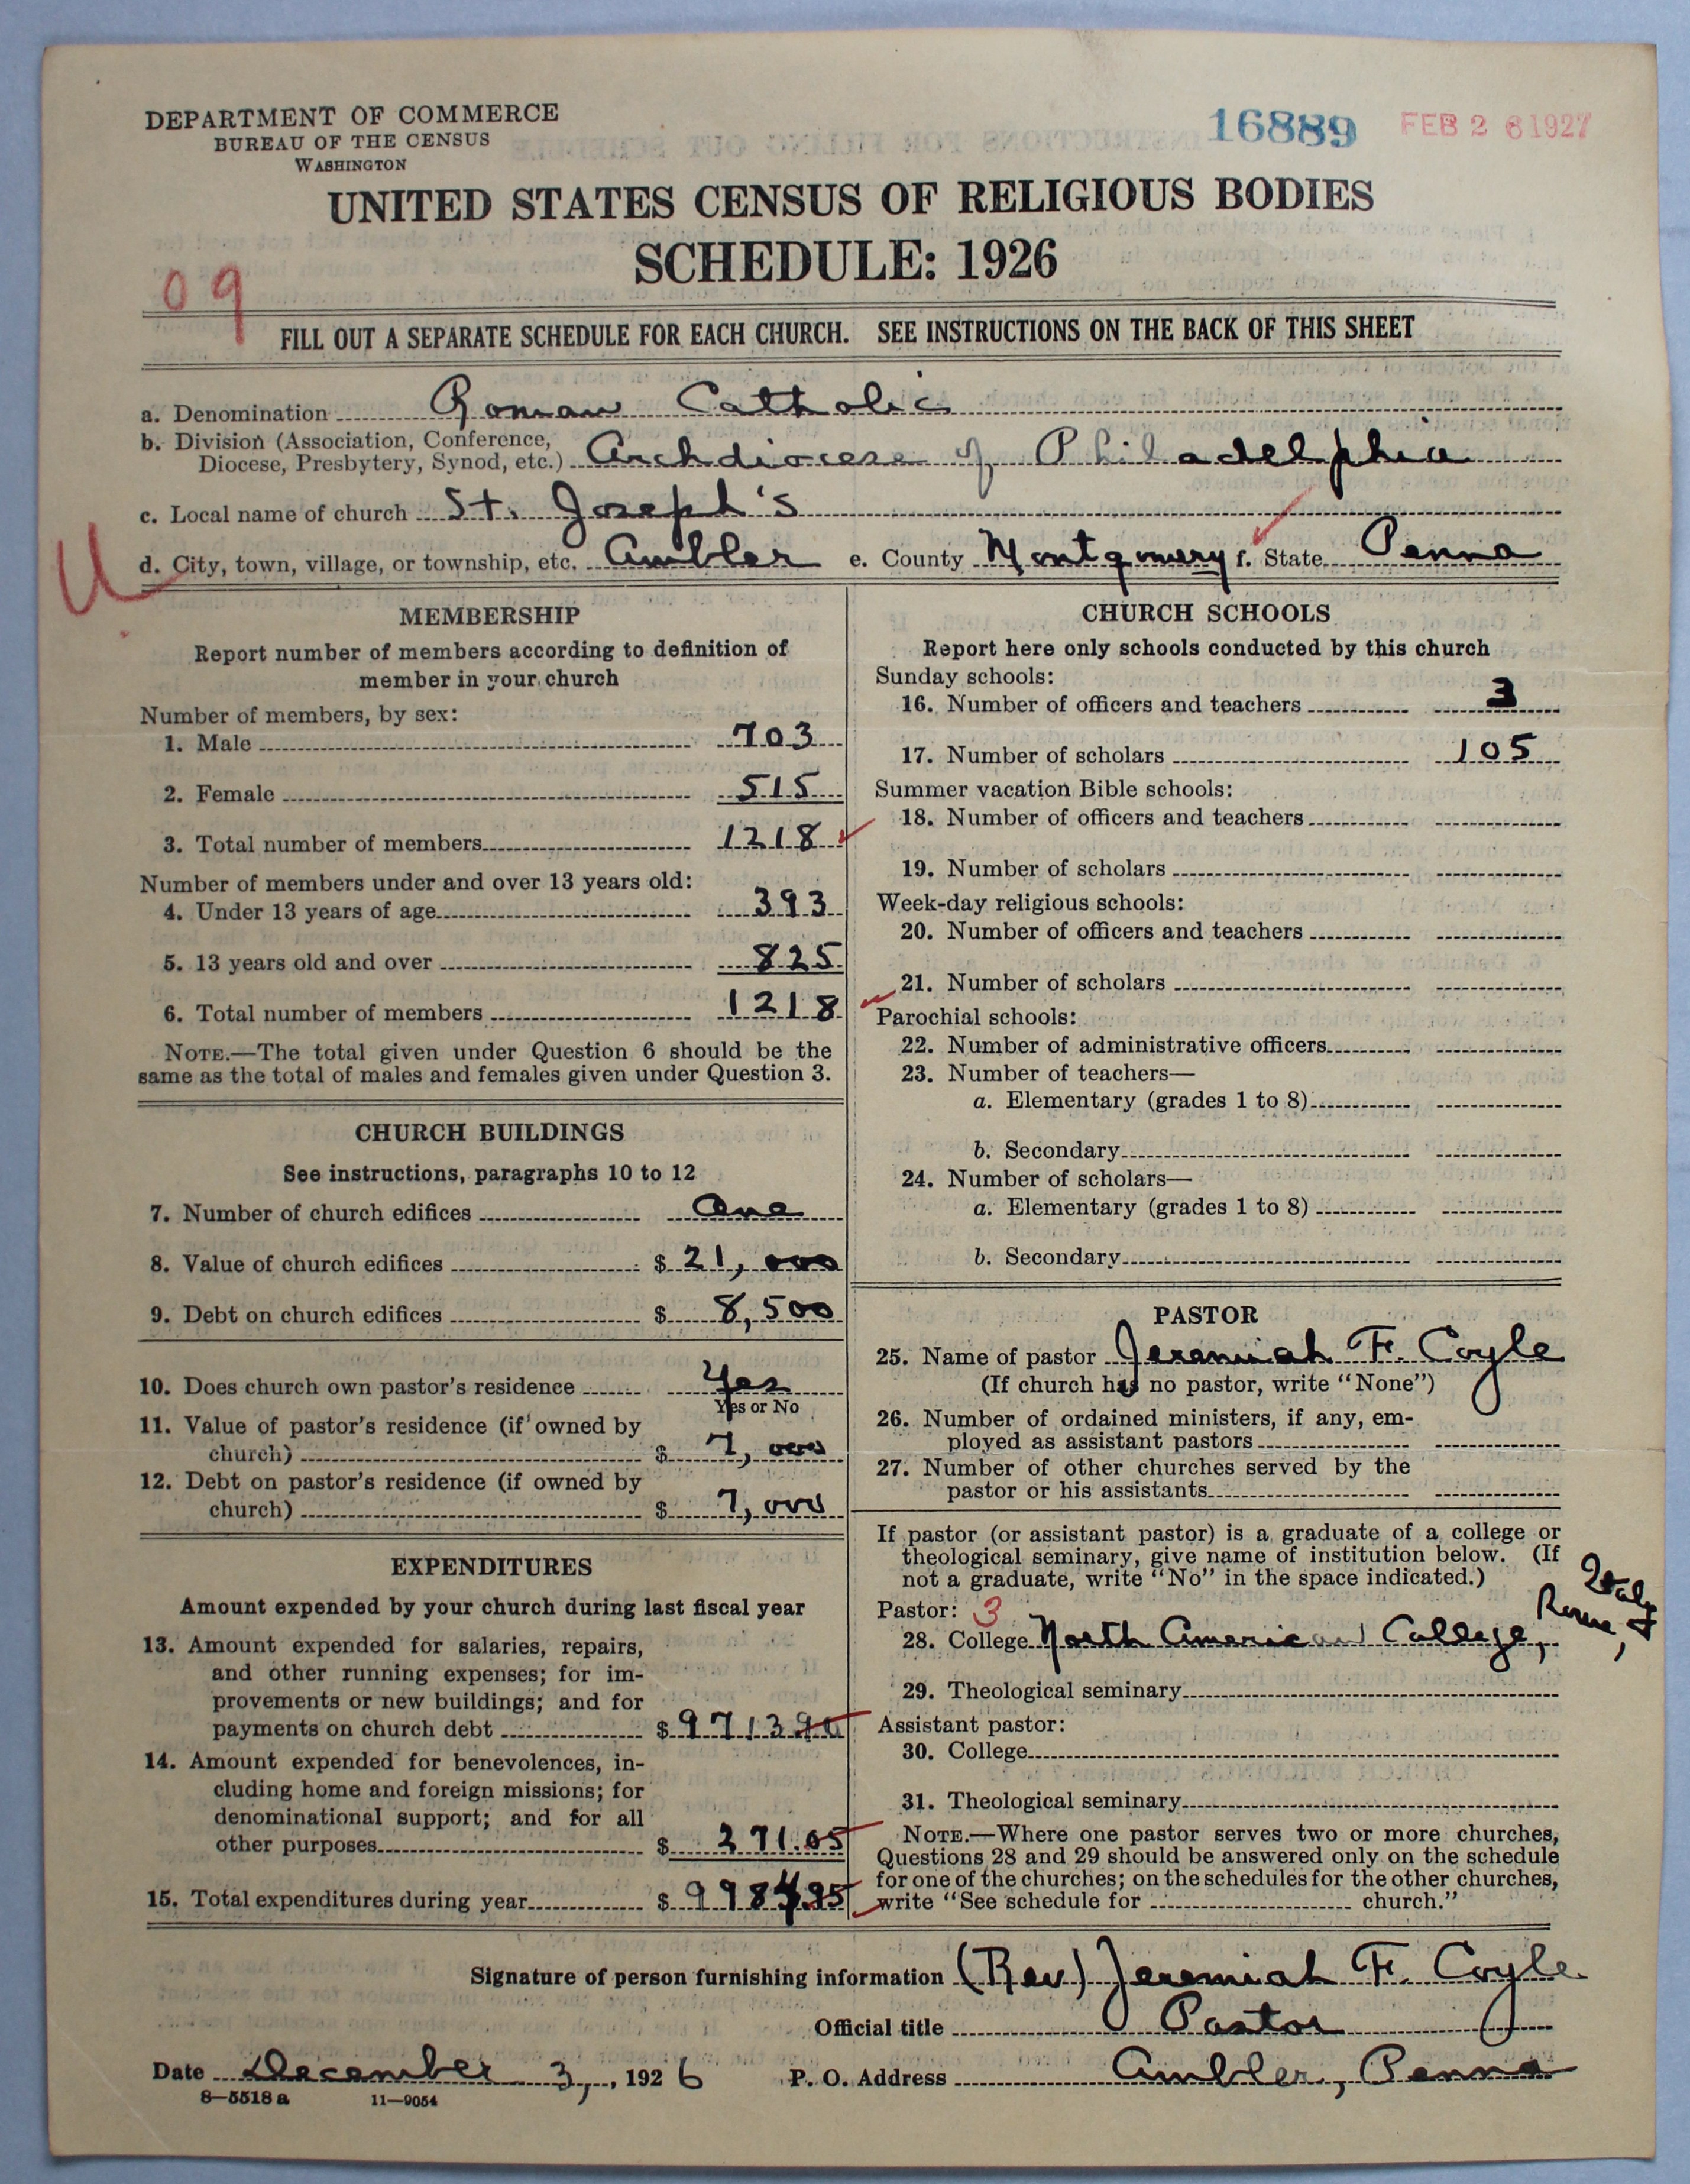 DEPARTMENT OF COMMERCE
BUREAU OF THE CENSUS
WASHINGTON
16889
FEB 26 1927
UNITED STATES CENSUS OF RELIGIOUS BODIES
SCHEDULE: 1926
09
FILL OUT A SEPARATE SCHEDULE FOR EACH CHURCH. SEE INSTRUCTIONS ON THE BACK OF THIS SHEET
a. Denomination Roman Catholic
b. Division (Association, Conference,
Diocese, Presbytery, Synod, etc.) Archdiocese of Philadelphia
c. Local name of church St. Joseph's
U
d. City, town, village, or township, etc. Ambler e. County Montgomery f. State Penna
MEMBERSHIP
Report number of members according to definition of
member in your church
Number of members, by sex:
1. Male 703
2. Female 515
3. Total number of members 1218
Number of members under and over 13 years old:
4. Under 13 years of age 393
5. 13 years old and over 825
6. Total number of members 1218
NOTE.—The total given under Question 6 should be the
same as the total of males and females given under Question 3.
CHURCH BUILDINGS
See instructions, paragraphs 10 to 12
7. Number of church edifices One
8. Value of church edifices $ 21,000
9. Debt on church edifices $ 8,500
10. Does church own pastor's residence Yes
Yes or No
11. Value of pastor's residence (if owned by
church) $ 7,000
12. Debt on pastor's residence (if owned by
church) $ 7,000
EXPENDITURES
Amount expended by your church during last fiscal year
13. Amount expended for salaries, repairs,
and other running expenses; for im-
provements or new buildings; and for
payments on church debt $ 971390
14. Amount expended for benevolences, in-
cluding home and foreign missions; for
denominational support; and for all
other purposes $ 271.05
15. Total expenditures during year $ 998495
CHURCH SCHOOLS
Report here only schools conducted by this church
Sunday schools:
16. Number of officers and teachers 3
17. Number of scholars 105
Summer vacation Bible schools:
18. Number of officers and teachers
19. Number of scholars
Week-day religious schools:
20. Number of officers and teachers
21. Number of scholars
Parochial schools:
22. Number of administrative officers
23. Number of teachers—
a. Elementary (grades 1 to 8)
b. Secondary
24. Number of scholars—
a. Elementary (grades 1 to 8)
b. Secondary
PASTOR
25. Name of pastor Jeremiah F. Coyle
(If church has no pastor, write "None")
26. Number of ordained ministers, if any, em-
ployed as assistant pastors
27. Number of other churches served by the
pastor or his assistants
If pastor (or assistant pastor) is a graduate of a college or
theological seminary, give name of institution below. (If
not a graduate, write "No" in the space indicated.)
Pastor: 3
28. College North American College, Rome, Italy
29. Theological seminary
Assistant pastor:
30. College
31. Theological seminary
NOTE.—Where one pastor serves two or more churches,
Questions 28 and 29 should be answered only on the schedule
for one of the churches; on the schedules for the other churches,
write "See schedule for church."
Signature of person furnishing information (Rev) Jeremiah F. Coyle
Official title Pastor
Date December 3, 1926 P. O. Address Ambler, Penna
8—5518 a 11—9054